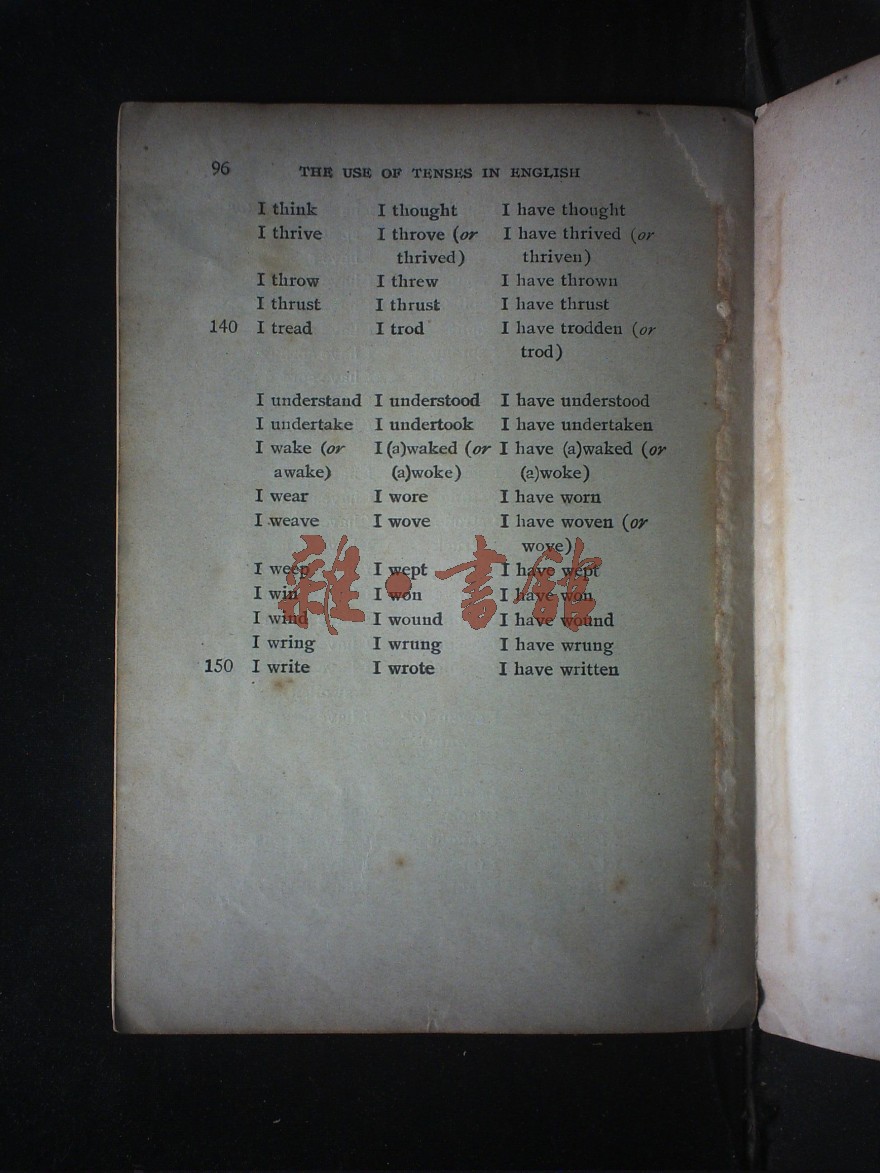 96 THE USE OF TENSES IN ENGLISH
I think I thought I have thought
I thrive I throve (or I have thrived (or
thrived) thriven)
I throw I threw I have thrown
I thrust I thrust I have thrust
140 I tread I trod I have trodden (or
trod)
I understand I understood I have understood
I undertake I undertook I have undertaken
I wake (or I (a)waked (or I have (a)waked (or
awake) (a)woke) (a)woke)
I wear I wore I have worn
I weave I wove I have woven (or
wove)
I weep I wept I have wept
雜·書館
I win I won I have won
I wind I wound I have wound
I wring I wrung I have wrung
150 I write I wrote I have written